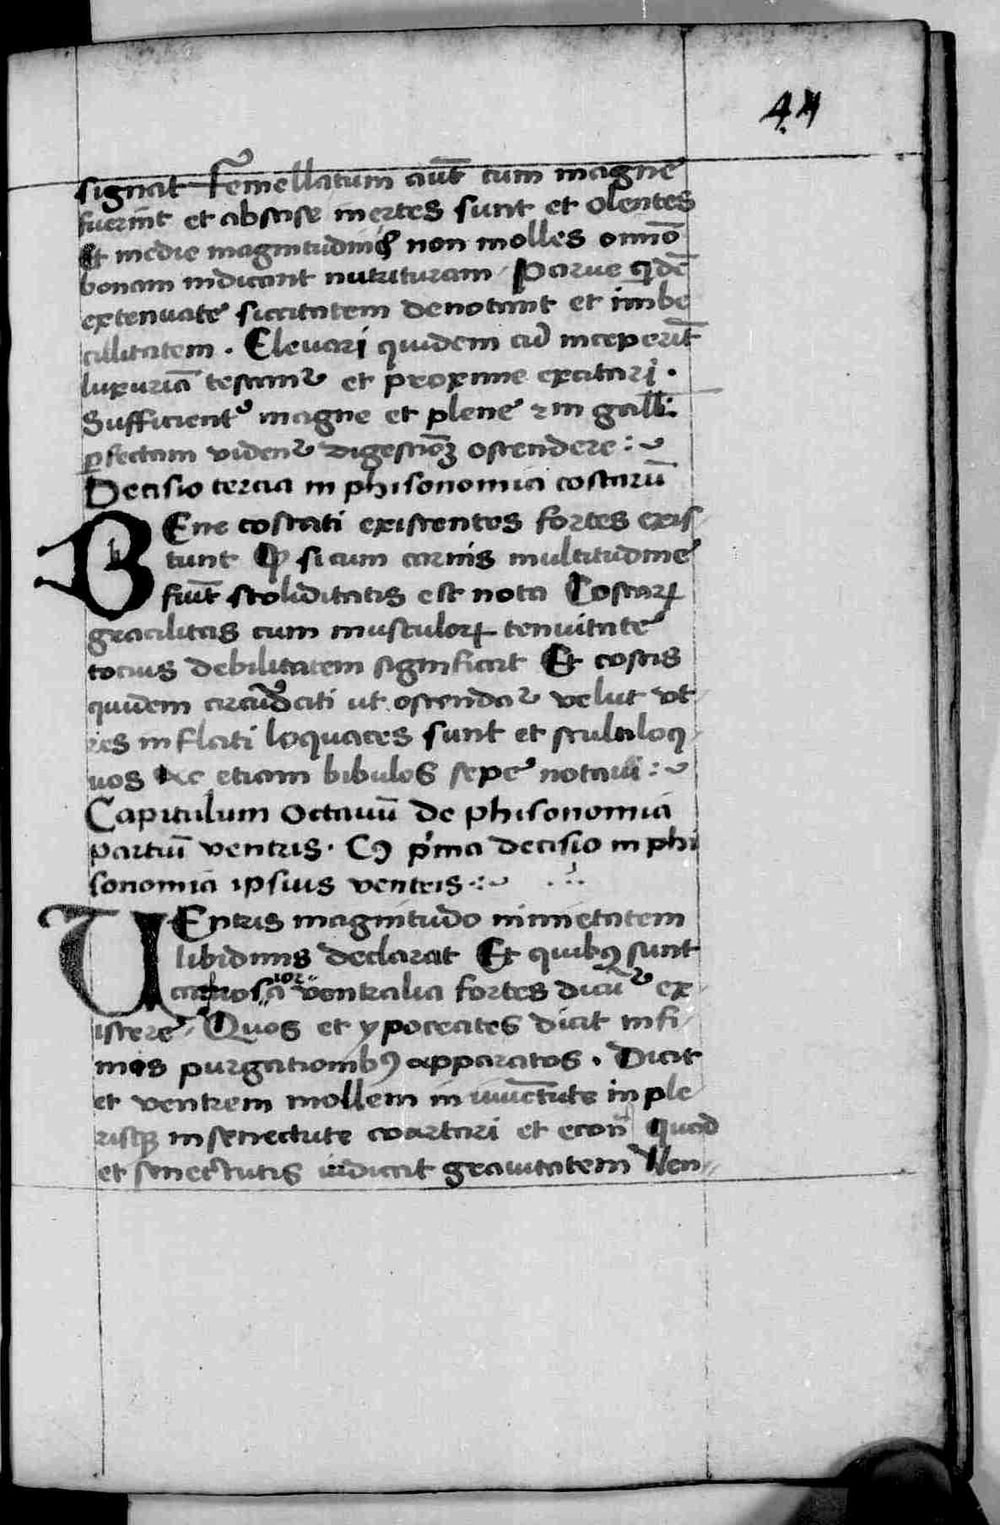 44
signat femellatum aut̄ cum magne
fuerint et abscise inertes sunt et olentes
Et medie magnitudinis non molles om̄o
bonam indicant nutrituram. Parue q̄dē
extenuate siccitatem denotant et imbe
cillitatem. Eleuari quidem cū inceperīt
luxuriā testant᷑ et proxime excitari.
Sufficient᷑ magne et plene
ꝑfectam vident᷑ digestiōꝫ ostendere :~
Decisio tercia in phisonomia costarū
BEne costati existentes fortes exis
tunt Qꝫ si cum carnis multitudine
fiūt stoliditatis est nota Costaꝝ
gracilitas cum musculoꝝ tenuitate
tocius debilitatem significat Et costis
quidem circūdati ut ostendat᷑ velut vt
res inflati loquaces sunt et stultiloq
uos Ac etiam bibulos sepe notaui :~
Capitulum Octauū de phisonomia
partiū ventris. Cꝫ p'ma decisio in phi
sonomia ipsius ventris :~
VEntris magnitudo nimietatem
libidinis declarat Et quibꝰ sunt
carnosiora ventralia fortes dicūt᷑ ex
istere. Quos et ypocrates dicit infi
mis purgationibꝰ apparatos. Dicit
et ventrem mollem in iuuentute in ple
risqꝫ in senectute coartari et econ̄ Quod
et senectutis indicat grauitatem Ven